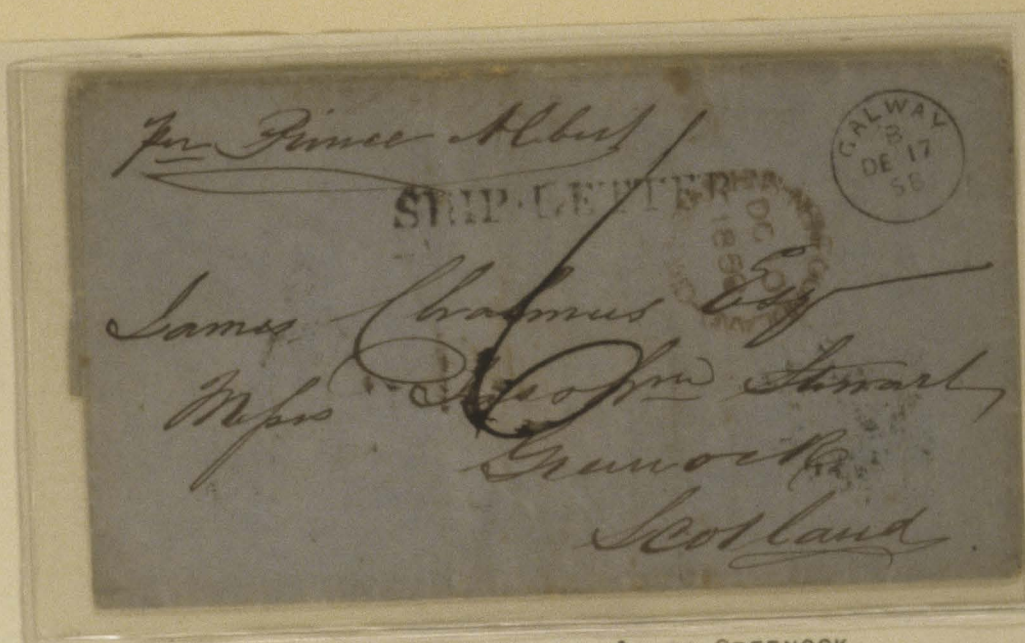 per Prince Albert
SHIP-LETTER
GALWAY
B
DE 17
58
DC
185
James Chalmers Esq
Messrs Stewart
Greenock
Scotland
6
GREENOCK